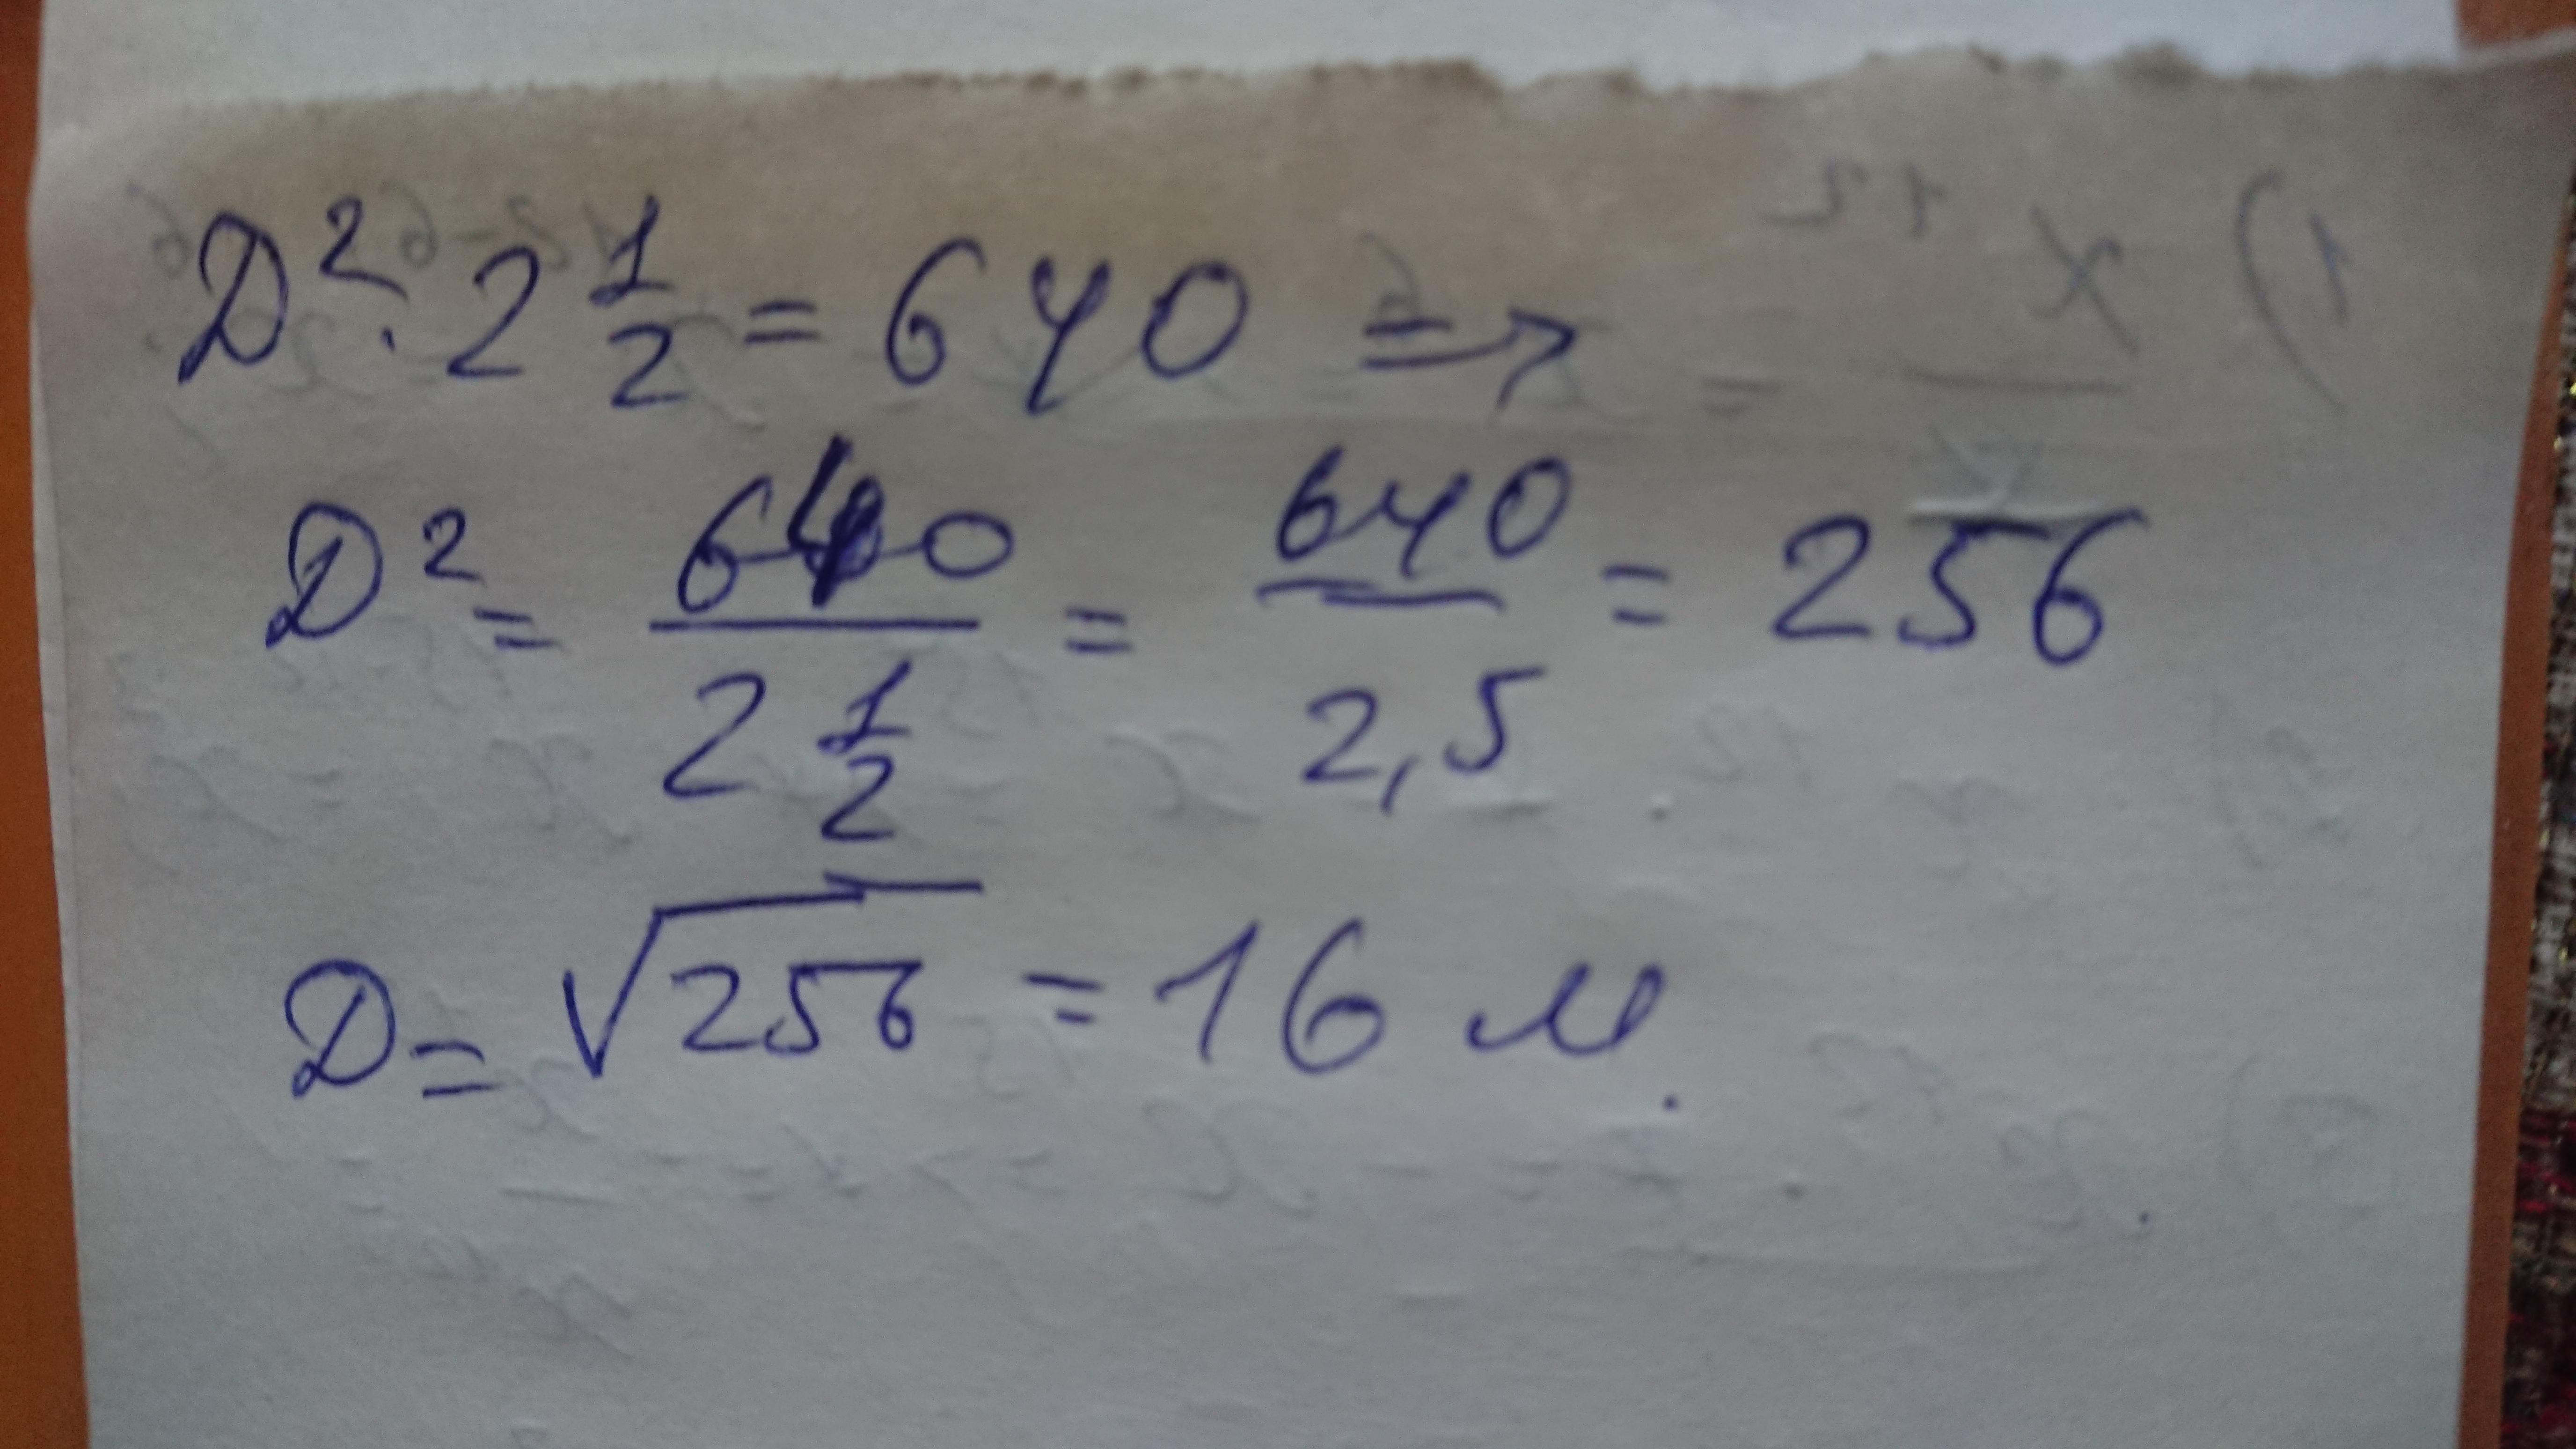 Д² · 2 1/2 = 640 =>
Д² = 640 / 2 1/2 = 640 / 2,5 = 256
Д = √256 = 16 м.